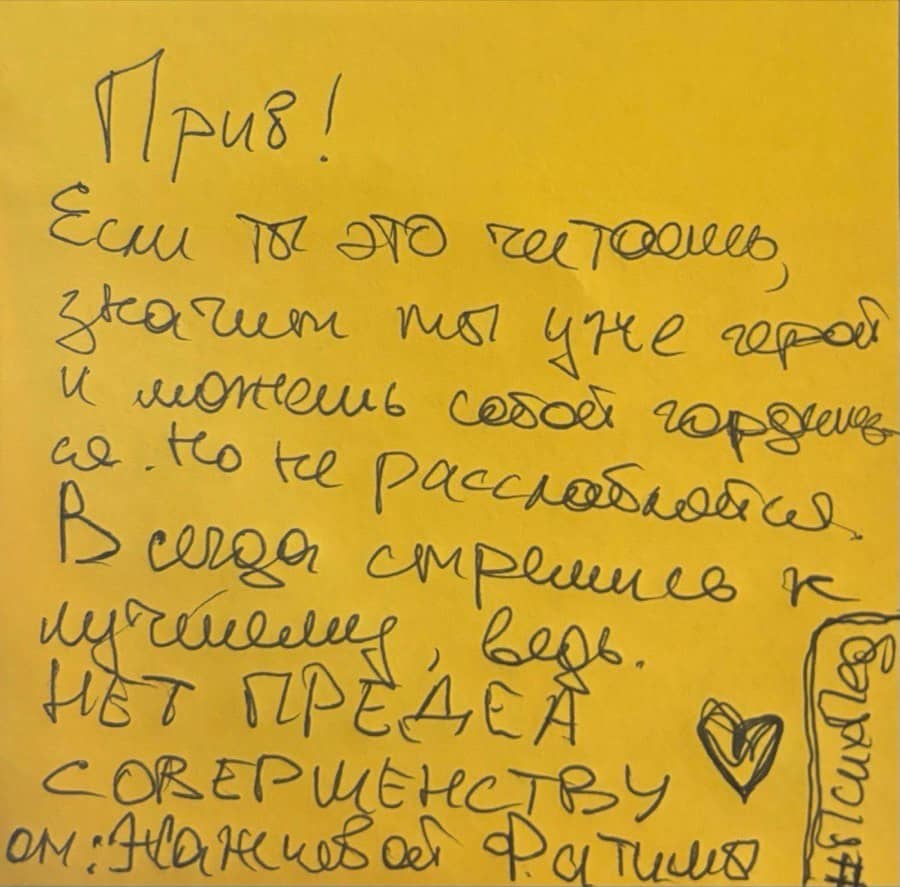 Прив!
Если ты это читаешь,
значит ты уже герой
и можешь собой гордить
ся. Но не расслабляйся.
Всегда стремись к
лучшему, ведь.
НЕТ ПРЕДЕЛА
СОВЕРШЕНСТВУ
от: Фатимы
#ПсихПед